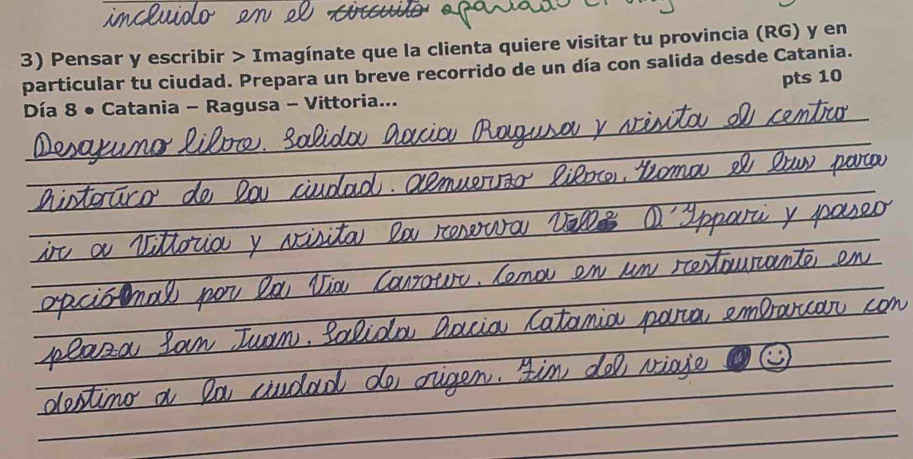 incluido en el circuito apartado
3) Pensar y escribir > Imagínate que la clienta quiere visitar tu provincia (RG) y en
particular tu ciudad. Prepara un breve recorrido de un día con salida desde Catania.
pts 10
Día 8 • Catania – Ragusa – Vittoria...
Desayuno libre. Salida hacia Ragusa y visita el centro
historico de la ciudad. Almuerzo libre. Toma el bus para
ir a Vittoria y visita la reserva Valle D'Ippari y paseo
opcional por la Via Cavour. Cena en un restaurante en
plaza San Juan. Salida hacia Catania para embarcar con
destino a la ciudad de origen. Fin del viaje ☺